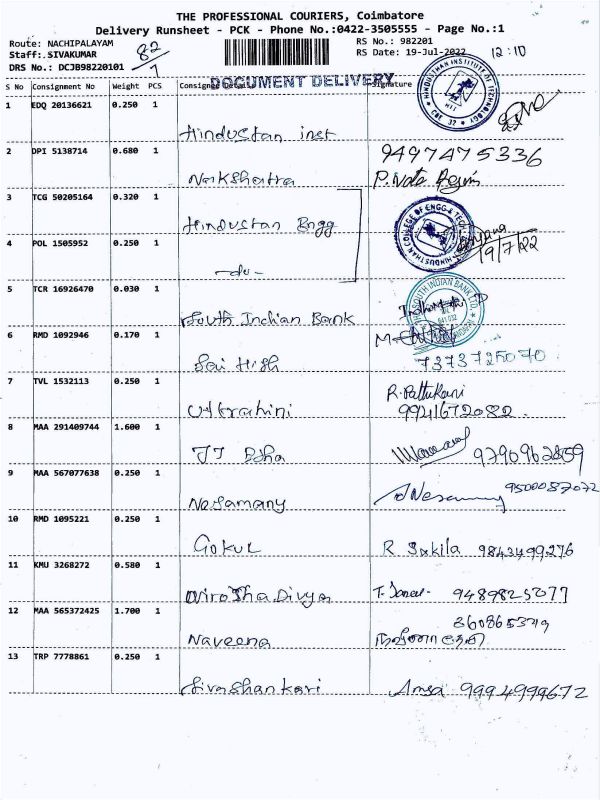 THE PROFESSIONAL COURIERS, Coimbatore
Delivery Runsheet - PCK - Phone No.:0422-3505555 - Page No.:1
Route: NACHIPALAYAM 82 RS No.: 982201
Staff:.SIVAKUMAR RS Date: 19-Jul-2022 12:10
DRS No.: DCJB98220101 7
DOCUMENT DELIVERY
S No Consignment No Weight PCS Consignee Signature
1 EDQ 20136621 0.250 1
Hindustan inst
2 DPI 5138714 0.680 1 9497475336
Nakshatra
3 TCG 50205164 0.320 1
Hindustan Engg
4 POL 1505952 0.250 1 19/7/22
-do-
5 TCR 16926470 0.030 1
South Indian Bank
6 RMD 1092946 0.170 1
Sai Hish 7373725070
7 TVL 1532113 0.250 1 R. Pattukani
9941672082
8 MAA 291409744 1.600 1
9790962859
9 MAA 567077638 0.250 1
Nesamany 9500087072
10 RMD 1095221 0.250 1
Gokul R Sakila 9843499276
11 KMU 3268272 0.580 1
Divya 9489825077
12 MAA 565372425 1.700 1
Naveena
13 TRP 7778861 0.250 1
Sivashankari Amsa 9994999672